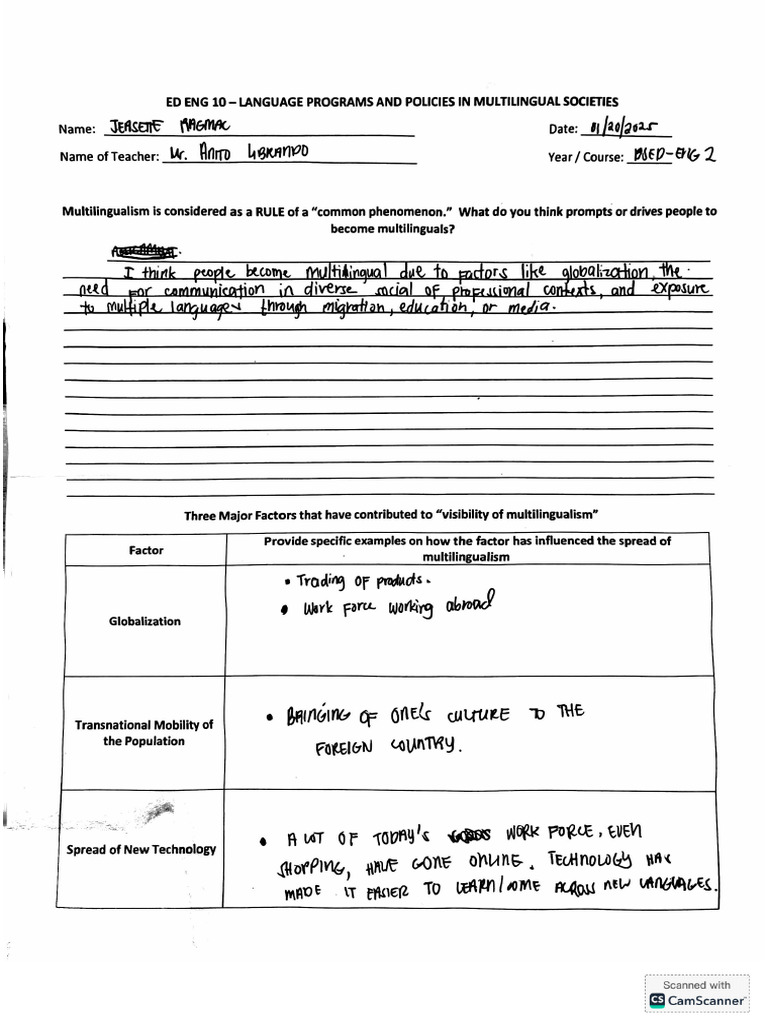 ED ENG 10 – LANGUAGE PROGRAMS AND POLICIES IN MULTILINGUAL SOCIETIES
Name: JERSETTE MAGMAC
Date: 01/20/2025
Name of Teacher: Mr. ANITO LIBRANDO
Year / Course: BSED-ENG 2
Multilingualism is considered as a RULE of a “common phenomenon.” What do you think prompts or drives people to
become multilinguals?
I think people become multilingual due to factors like globalization, the
need for communication in diverse social of professional contexts, and exposure
to multiple languages through migration, education, or media.
Three Major Factors that have contributed to “visibility of multilingualism”
Factor
Provide specific examples on how the factor has influenced the spread of
multilingualism
Globalization
• Trading of products.
• Work Force working abroad
Transnational Mobility of
the Population
• BRINGING OF ONE'S CULTURE TO THE
FOREIGN COUNTRY.
Spread of New Technology
• A LOT OF TODAY'S WORK FORCE, EVEN
SHOPPING, HAVE GONE ONLINE. TECHNOLOGY HAS
MADE IT EASIER TO LEARN/COME ACROSS NEW LANGUAGES.
Scanned with
CS CamScanner